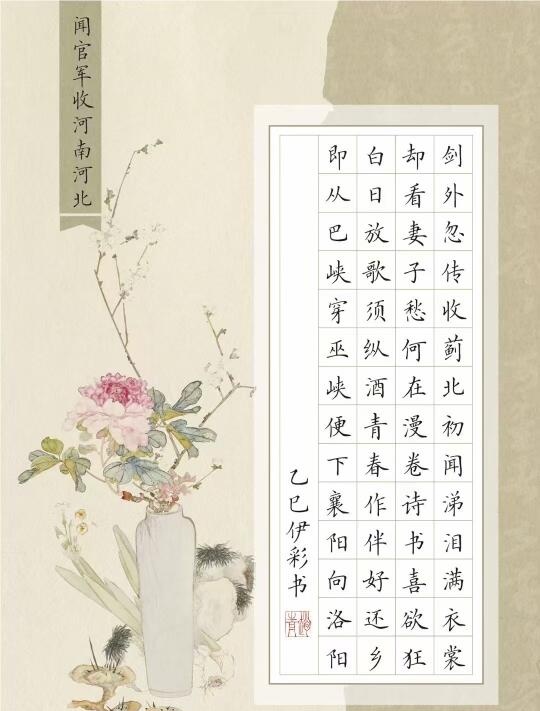 闻官军收河南河北
剑外忽传收蓟北初闻涕泪满衣裳
却看妻子愁何在漫卷诗书喜欲狂
白日放歌须纵酒青春作伴好还乡
即从巴峡穿巫峡便下襄阳向洛阳
乙巳伊彩书